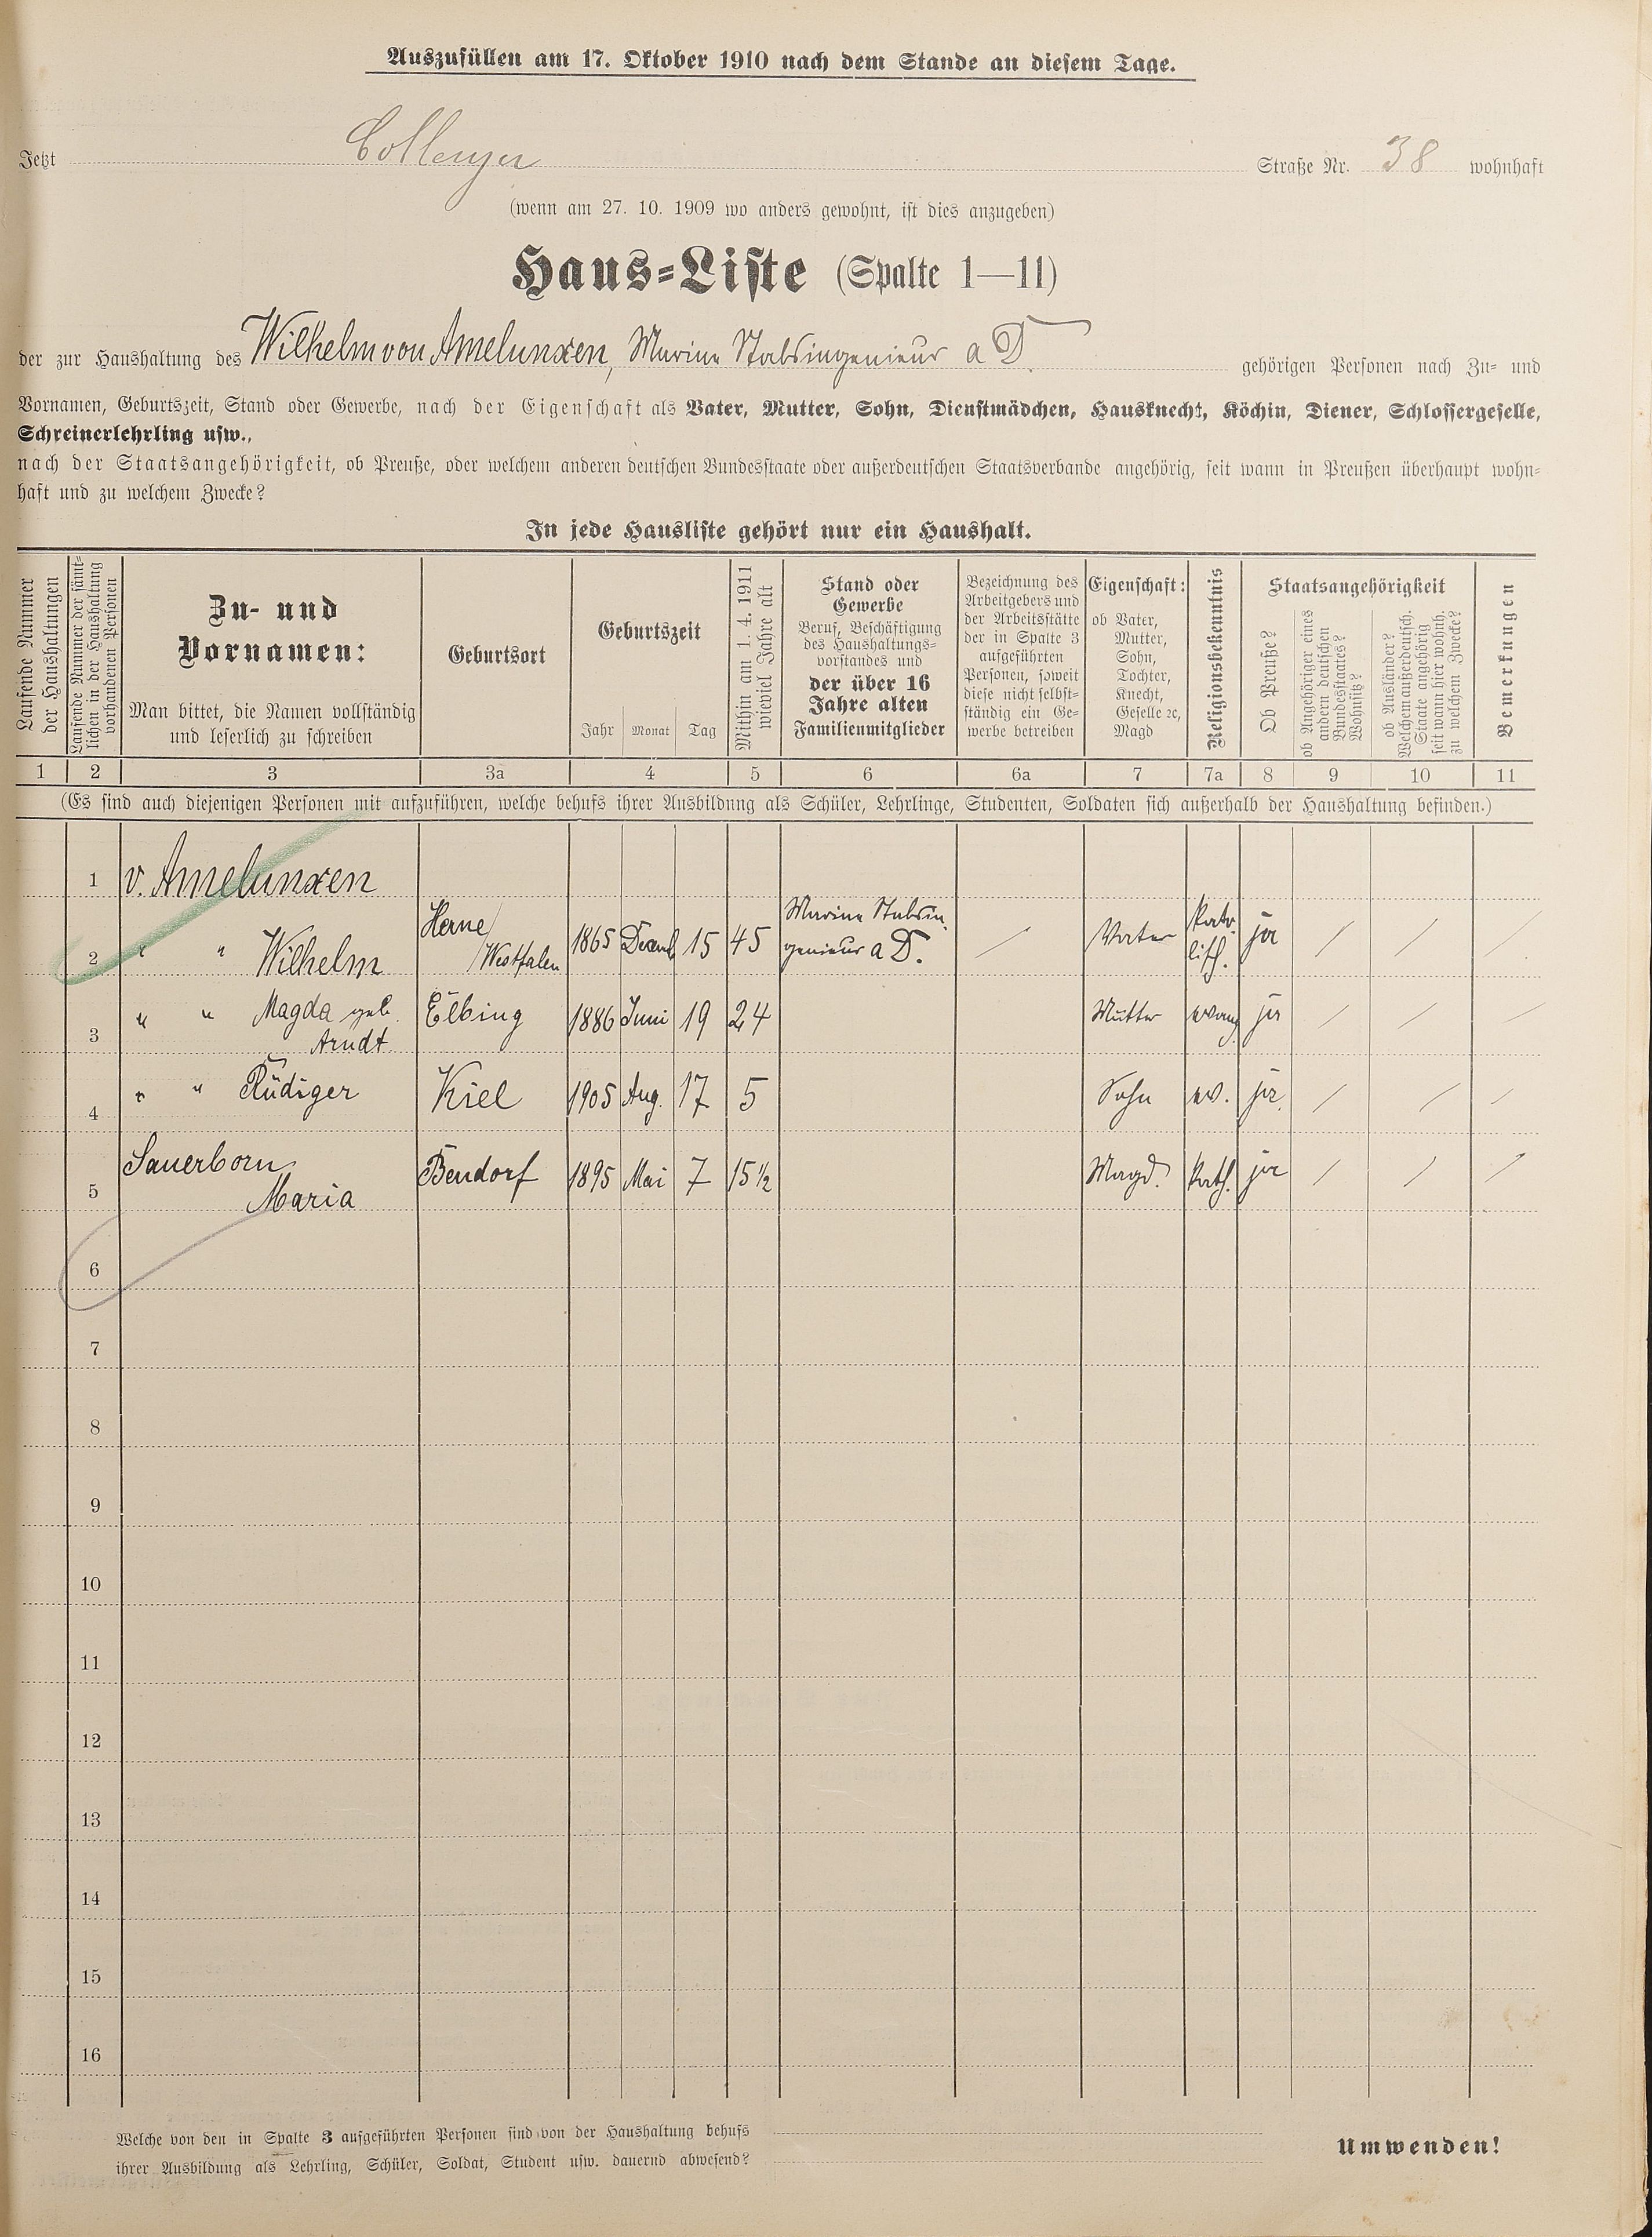 Auszufüllen am 17. Oktober 1910 nach dem Stande an diesem Tage.
Jetzt Straße Nr. 38 wohnhaft
(wenn am 27. 10. 1909 wo anders gewohnt, ist dies anzugeben)
Haus-Liste (Spalte 1—11)
der zur Haushaltung des Wilhelm von Amelunxen, Marine Stabsingenieur a D. gehörigen Personen nach Zu- und
Vornamen, Geburtszeit, Stand oder Gewerbe, nach der Eigenschaft als Vater, Mutter, Sohn, Dienstmädchen, Hausknecht, Köchin, Diener, Schlossergeselle,
Schreinerlehrling usw.,
nach der Staatsangehörigkeit, ob Preuße, oder welchem anderen deutschen Bundesstaate oder außerdeutschen Staatsverbande angehörig, seit wann in Preußen überhaupt wohn-
haft und zu welchem Zwecke?
In jede Hausliste gehört nur ein Haushalt.
Laufende Nummer
der Haushaltungen
Laufende Nummer der sämt-
lichen in der Haushaltung
vorhandenen Personen
Zu- und
Vornamen:
Man bittet, die Namen vollständig
und leserlich zu schreiben
Geburtsort
Geburtszeit
Jahr Monat Tag
Mithin am 1. 4. 1911
wieviel Jahre alt
Stand oder
Gewerbe
Beruf, Beschäftigung
des Haushaltungs-
vorstandes und
der über 16
Jahre alten
Familienmitglieder
Bezeichnung des
Arbeitgebers und
der Arbeitsstätte
der in Spalte 3
aufgeführten
Personen, soweit
diese nicht selbst-
ständig ein Ge-
werbe betreiben
Eigenschaft:
ob Vater,
Mutter,
Sohn,
Tochter,
Knecht,
Geselle ꝛc,
Magd
Religionsbekenntnis
Staatsangehörigkeit
Ob Preuße?
ob Angehöriger eines
andern deutschen
Bundesstaates?
Wohnsitz?
ob Ausländer?
Welchem außerdeutsch.
Staate angehörig
seit wann hier wohnh.
zu welchem Zwecke?
Bemerkungen
1 2 3 3a 4 5 6 6a 7 7a 8 9 10 11
(Es sind auch diejenigen Personen mit aufzuführen, welche behufs ihrer Ausbildung als Schüler, Lehrlinge, Studenten, Soldaten sich außerhalb der Haushaltung befinden.)
1 v. Amelunxen
2 " " Wilhelm Herne/ 1865 Decemb 15 45 Marine Stabsin- / Vater Katho- ja / / /
/Westfalen genieur a D. lisch.
3 " " Magda geb. Elbing 1886 Juni 19 24 Mutter evang. ja / / /
Arndt
4 " " Rüdiger Kiel 1905 Aug. 17 5 Sohn ev. ja. / / /
Sauerborn, Bendorf 1895 Mai 7 15½ Magd. Kath. ja / / /
5 Maria
6
7
8
9
10
11
12
13
14
15
16
Welche von den in Spalte 3 aufgeführten Personen sind von der Haushaltung behufs
ihrer Ausbildung als Lehrling, Schüler, Soldat, Student usw. dauernd abwesend?
Umwenden!